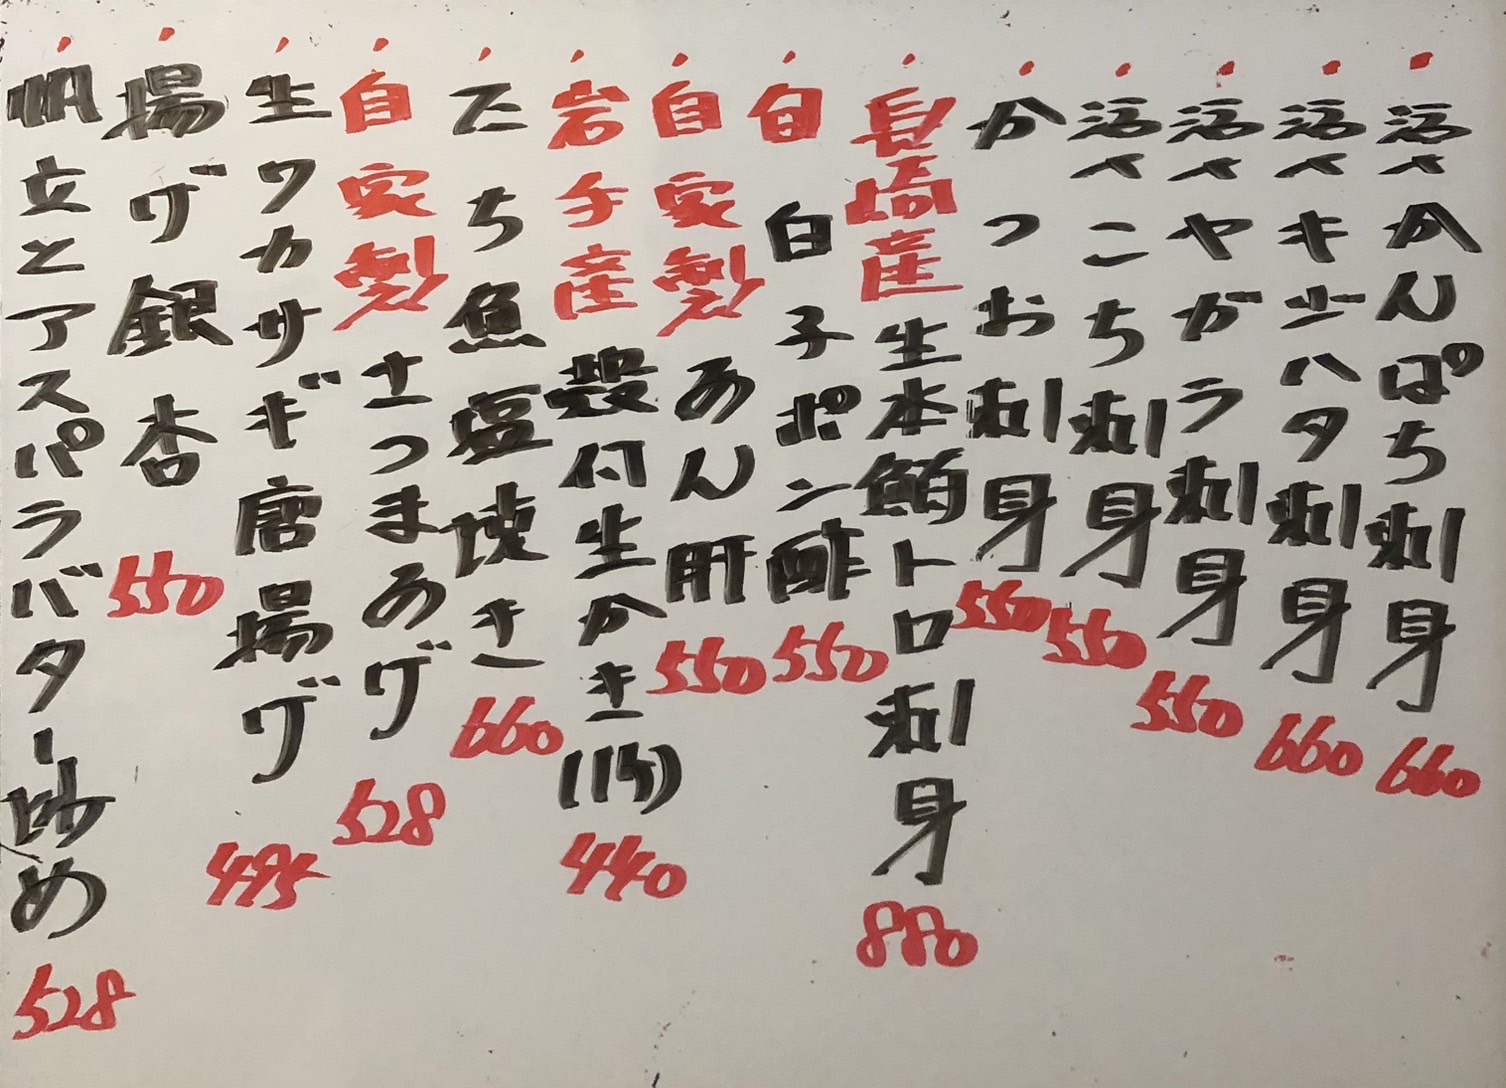 ・活〆かんぱち刺身 660
・活〆キジハタ刺身 660
・活〆ヤガラ刺身 550
・活〆こち刺身 550
・かつお刺身 550
・長崎産生本鮪トロ刺身 880
・旬白子ポン酢 550
・自家製あん肝 550
・岩手産殻付生かき 440
・たち魚塩焼き 660
・自家製さつまあげ 528
・生ワカサギ唐揚げ 495
・揚げ銀杏 550
・帆立とアスパラバター炒め 528